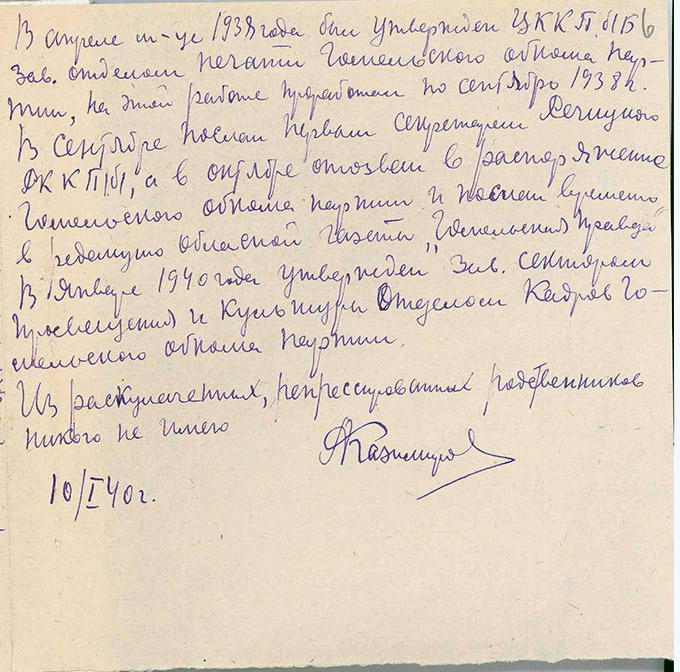 В апреле м-це 1938 года был утвержден ЦК КП(б)Б 6
Зав. отделом печати Гомельского обкома пар-
тии, на этой работе проработал по сентябрь 1938 г.
В сентябре послан первым секретарем Речицкого
РК КП(б), а в октябре отозван в распоряжение
Гомельского обкома партии и послан временно
в редакцию областной газеты „Гомельская правда"
В январе 1940 года утвержден Зав. сектором
просвещения и культуры Отделом Кадров Го-
мельского обкома партии.
Из раскулаченных, репрессированных родственников
никого не имею
АКазимиров
10/I 40 г.